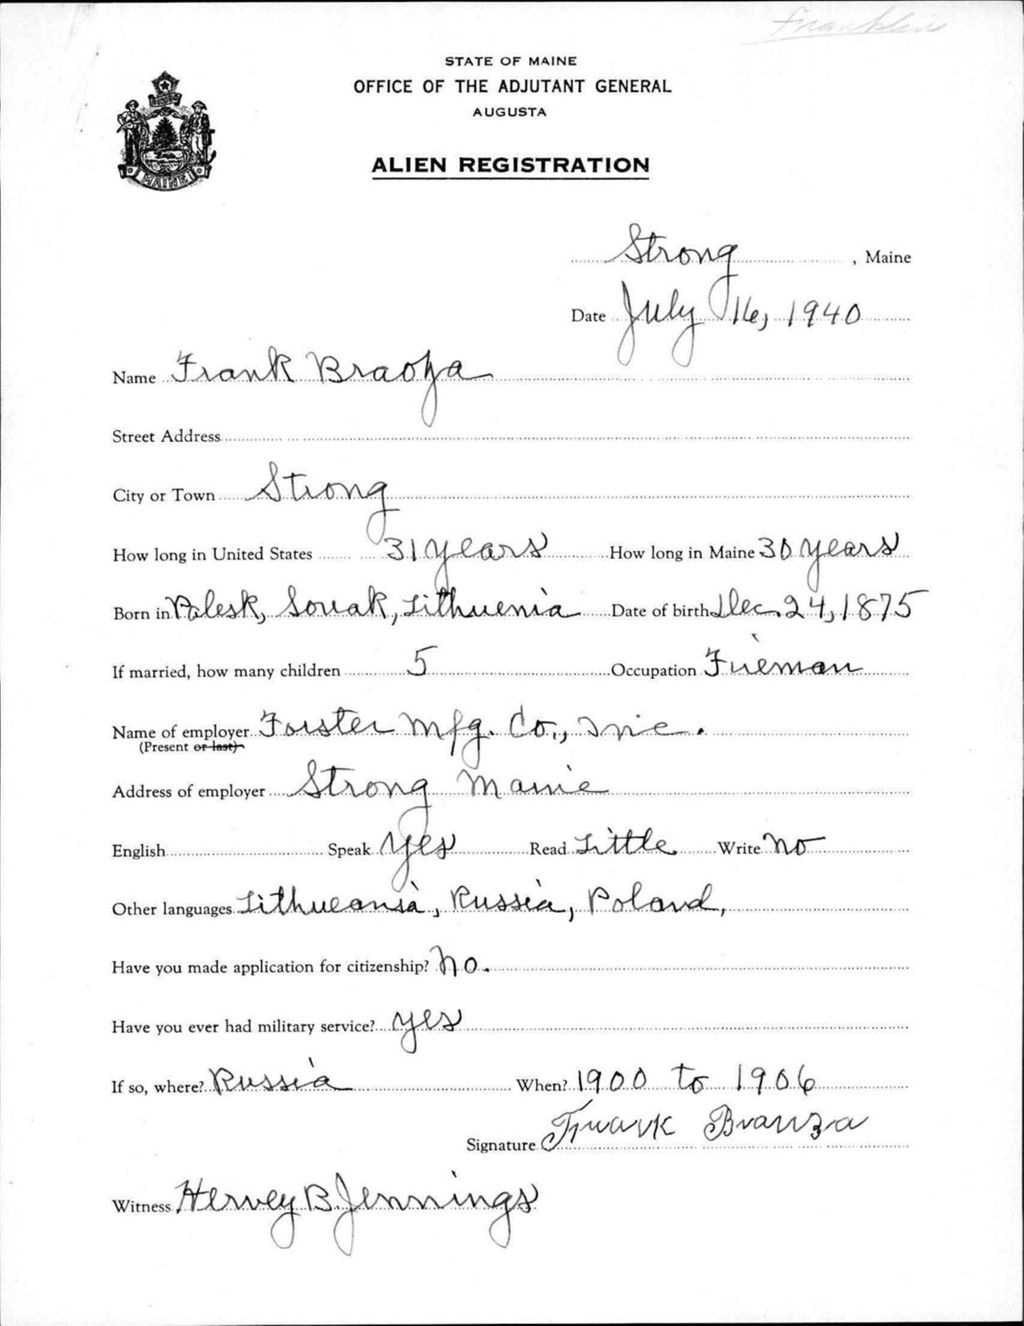 Franklin
STATE OF MAINE
OFFICE OF THE ADJUTANT GENERAL
AUGUSTA
ALIEN REGISTRATION
MAINE
Strong, Maine
Date July 16, 1940
Name Frank Braoza
Street Address
City or Town Strong
How long in United States 31 years How long in Maine 30 years
Born in Polesk, Souak, Lithuenia Date of birth Dec. 24, 1875
If married, how many children 5 Occupation Fireman
Name of employer Forster Mfg. Co., Inc.
(Present or last)
Address of employer Strong Maine
English Speak yes Read Little Write no
Other languages Lithueania, Russia, Poland,
Have you made application for citizenship? no.
Have you ever had military service? yes
If so, where? Russia When? 1900 to 1906
Signature Frank Branza
Witness Hervey B. Jennings